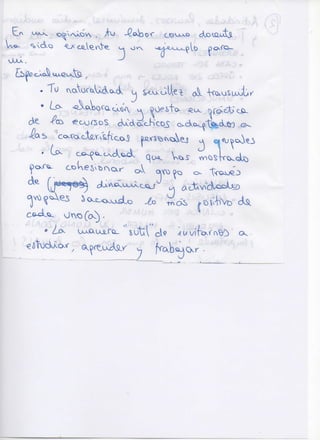 En mi opinión, tu labor como docente
ha sido excelente y un ejemplo para
mi.
Especialmente.
• Tu naturalidad y sencillez al transmitir
• La elaboración y puesta en práctica
de los recursos didácticos adaptados a
las características personales y grupales
• La capacidad que has mostrado
para cohesionar al grupo a través
de (juegos) dinámicas y actividades
grupales sacando lo más positivo de
cada uno(a).
• La manera sutil de invitarnos a
estudiar, aprender y trabajar.